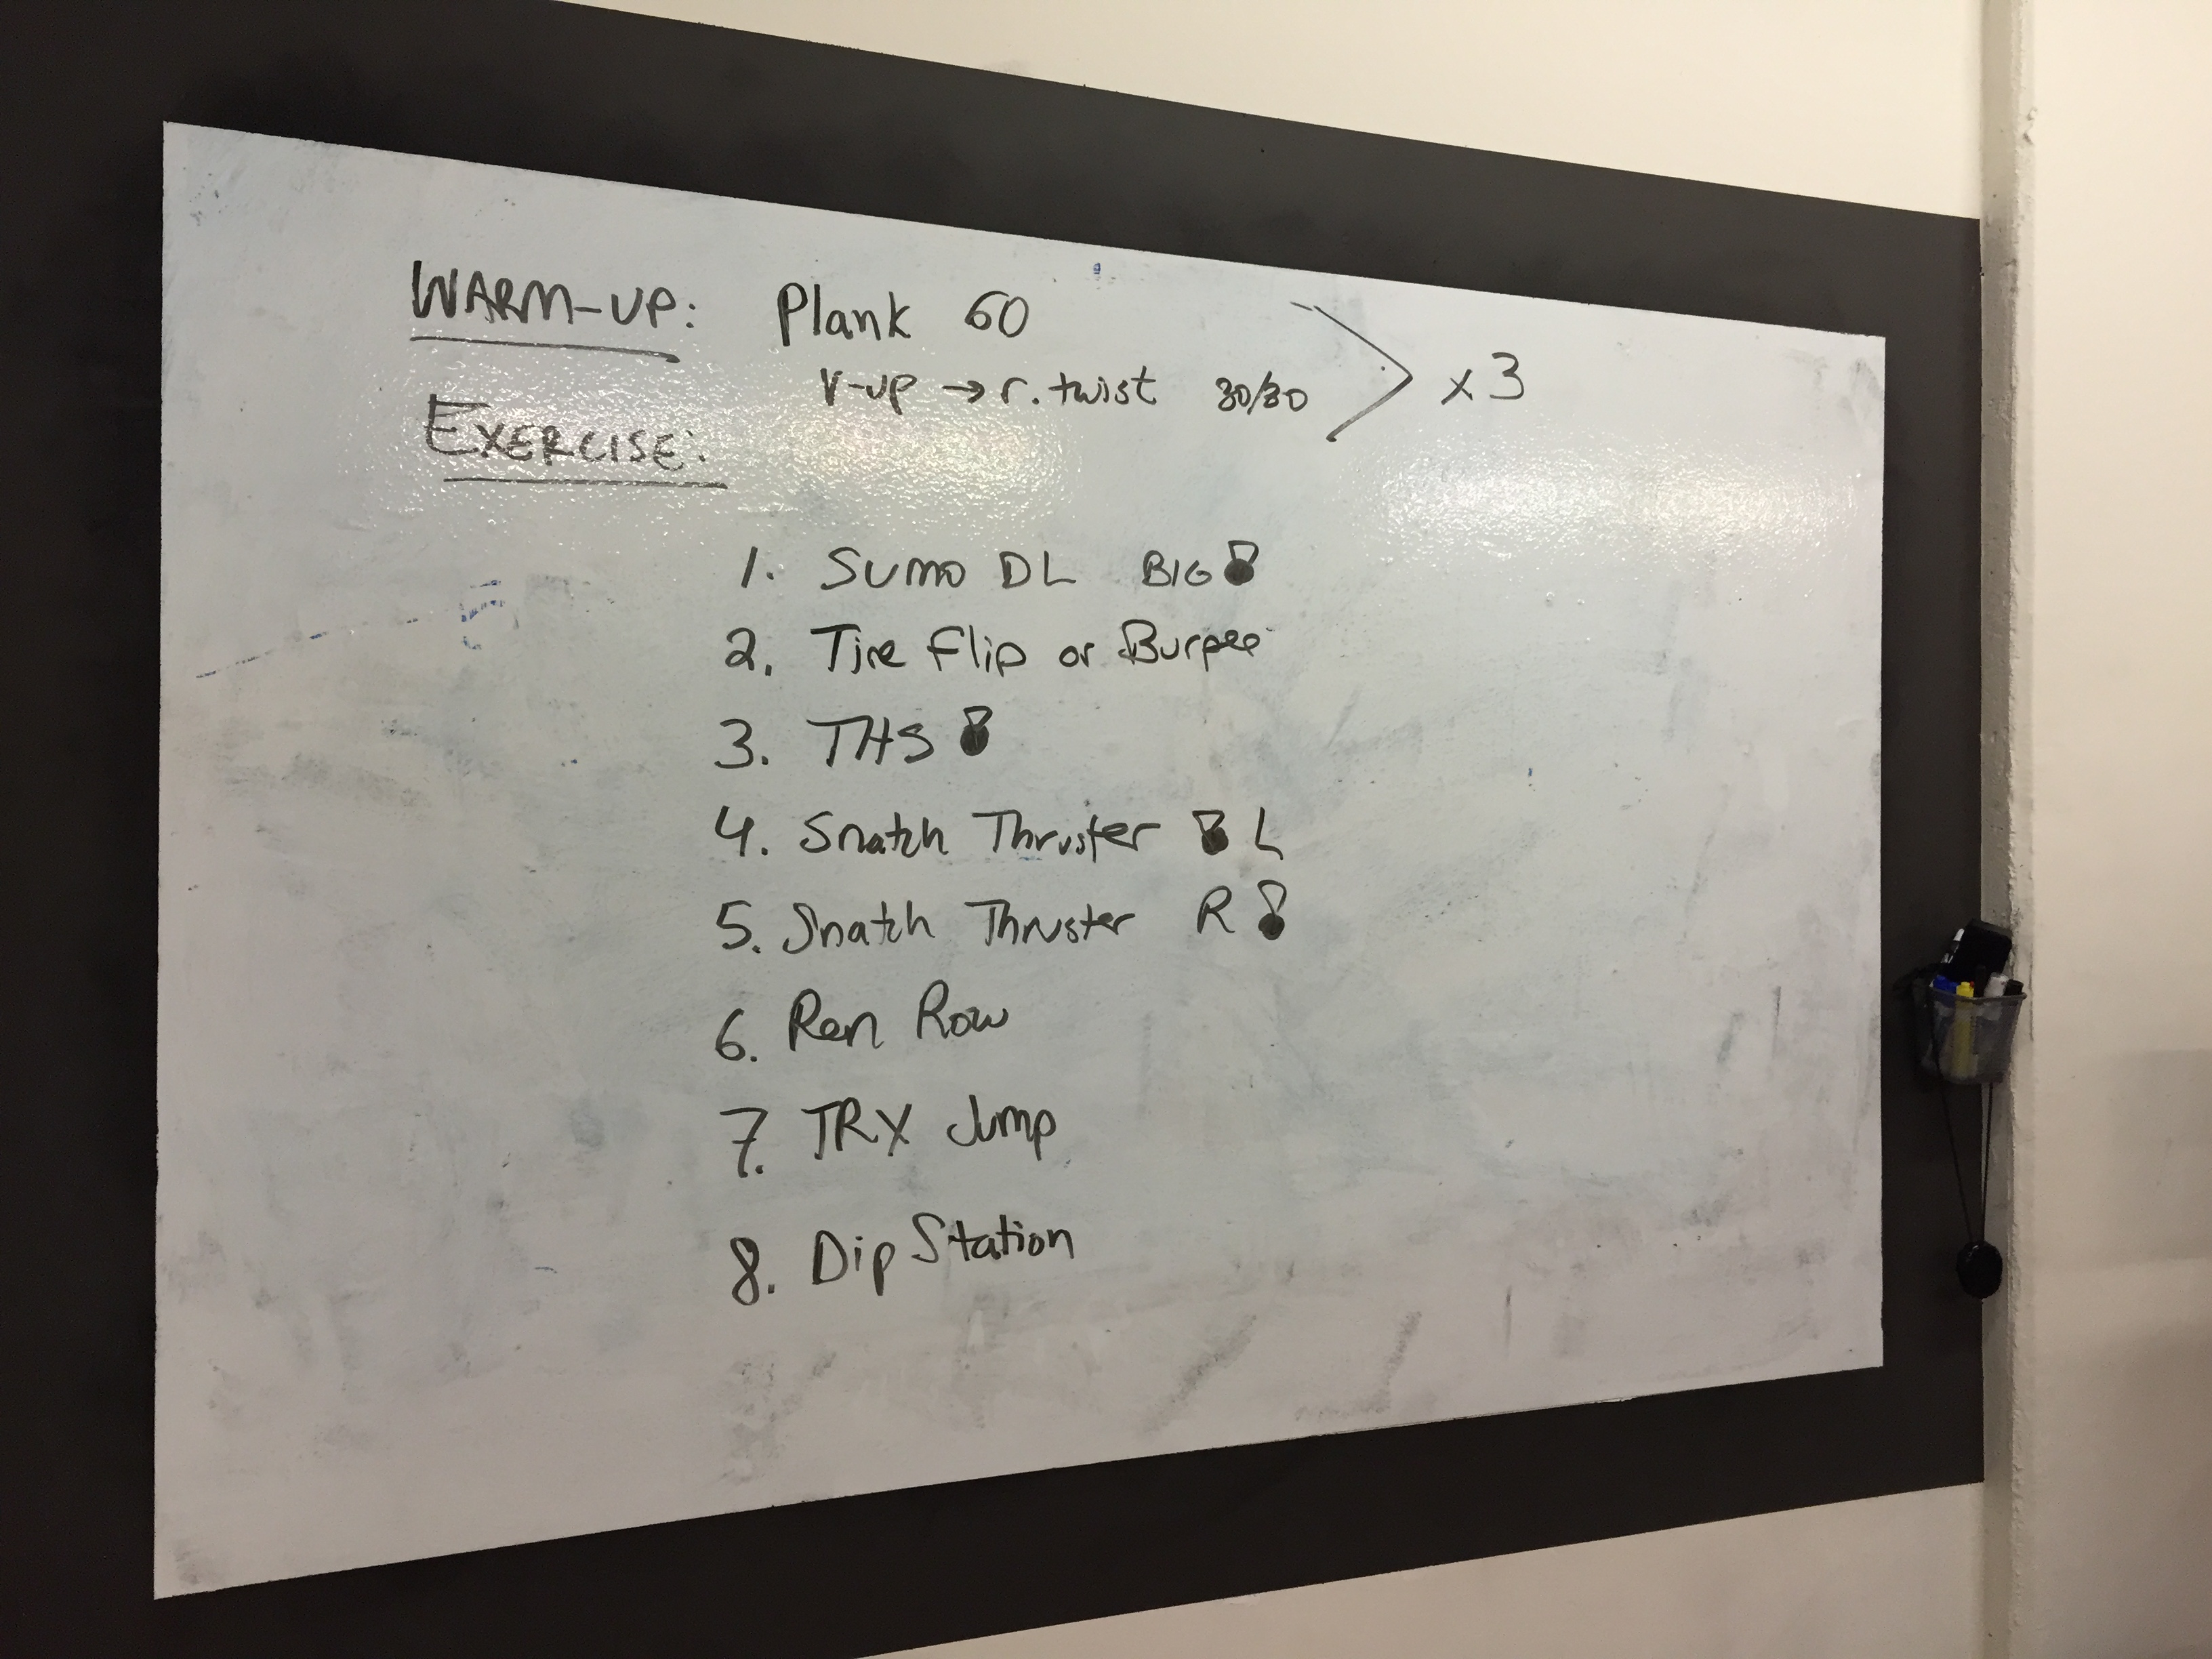 WARM-UP: Plank 60
V-up → r. twist 30/30 x3
EXERCISE:
1. SUMO DL BIG
2. Tire Flip or Burpee
3. THS
4. Snatch Thruster L
5. Snatch Thruster R
6. Ren Row
7. TRX Jump
8. Dip Station